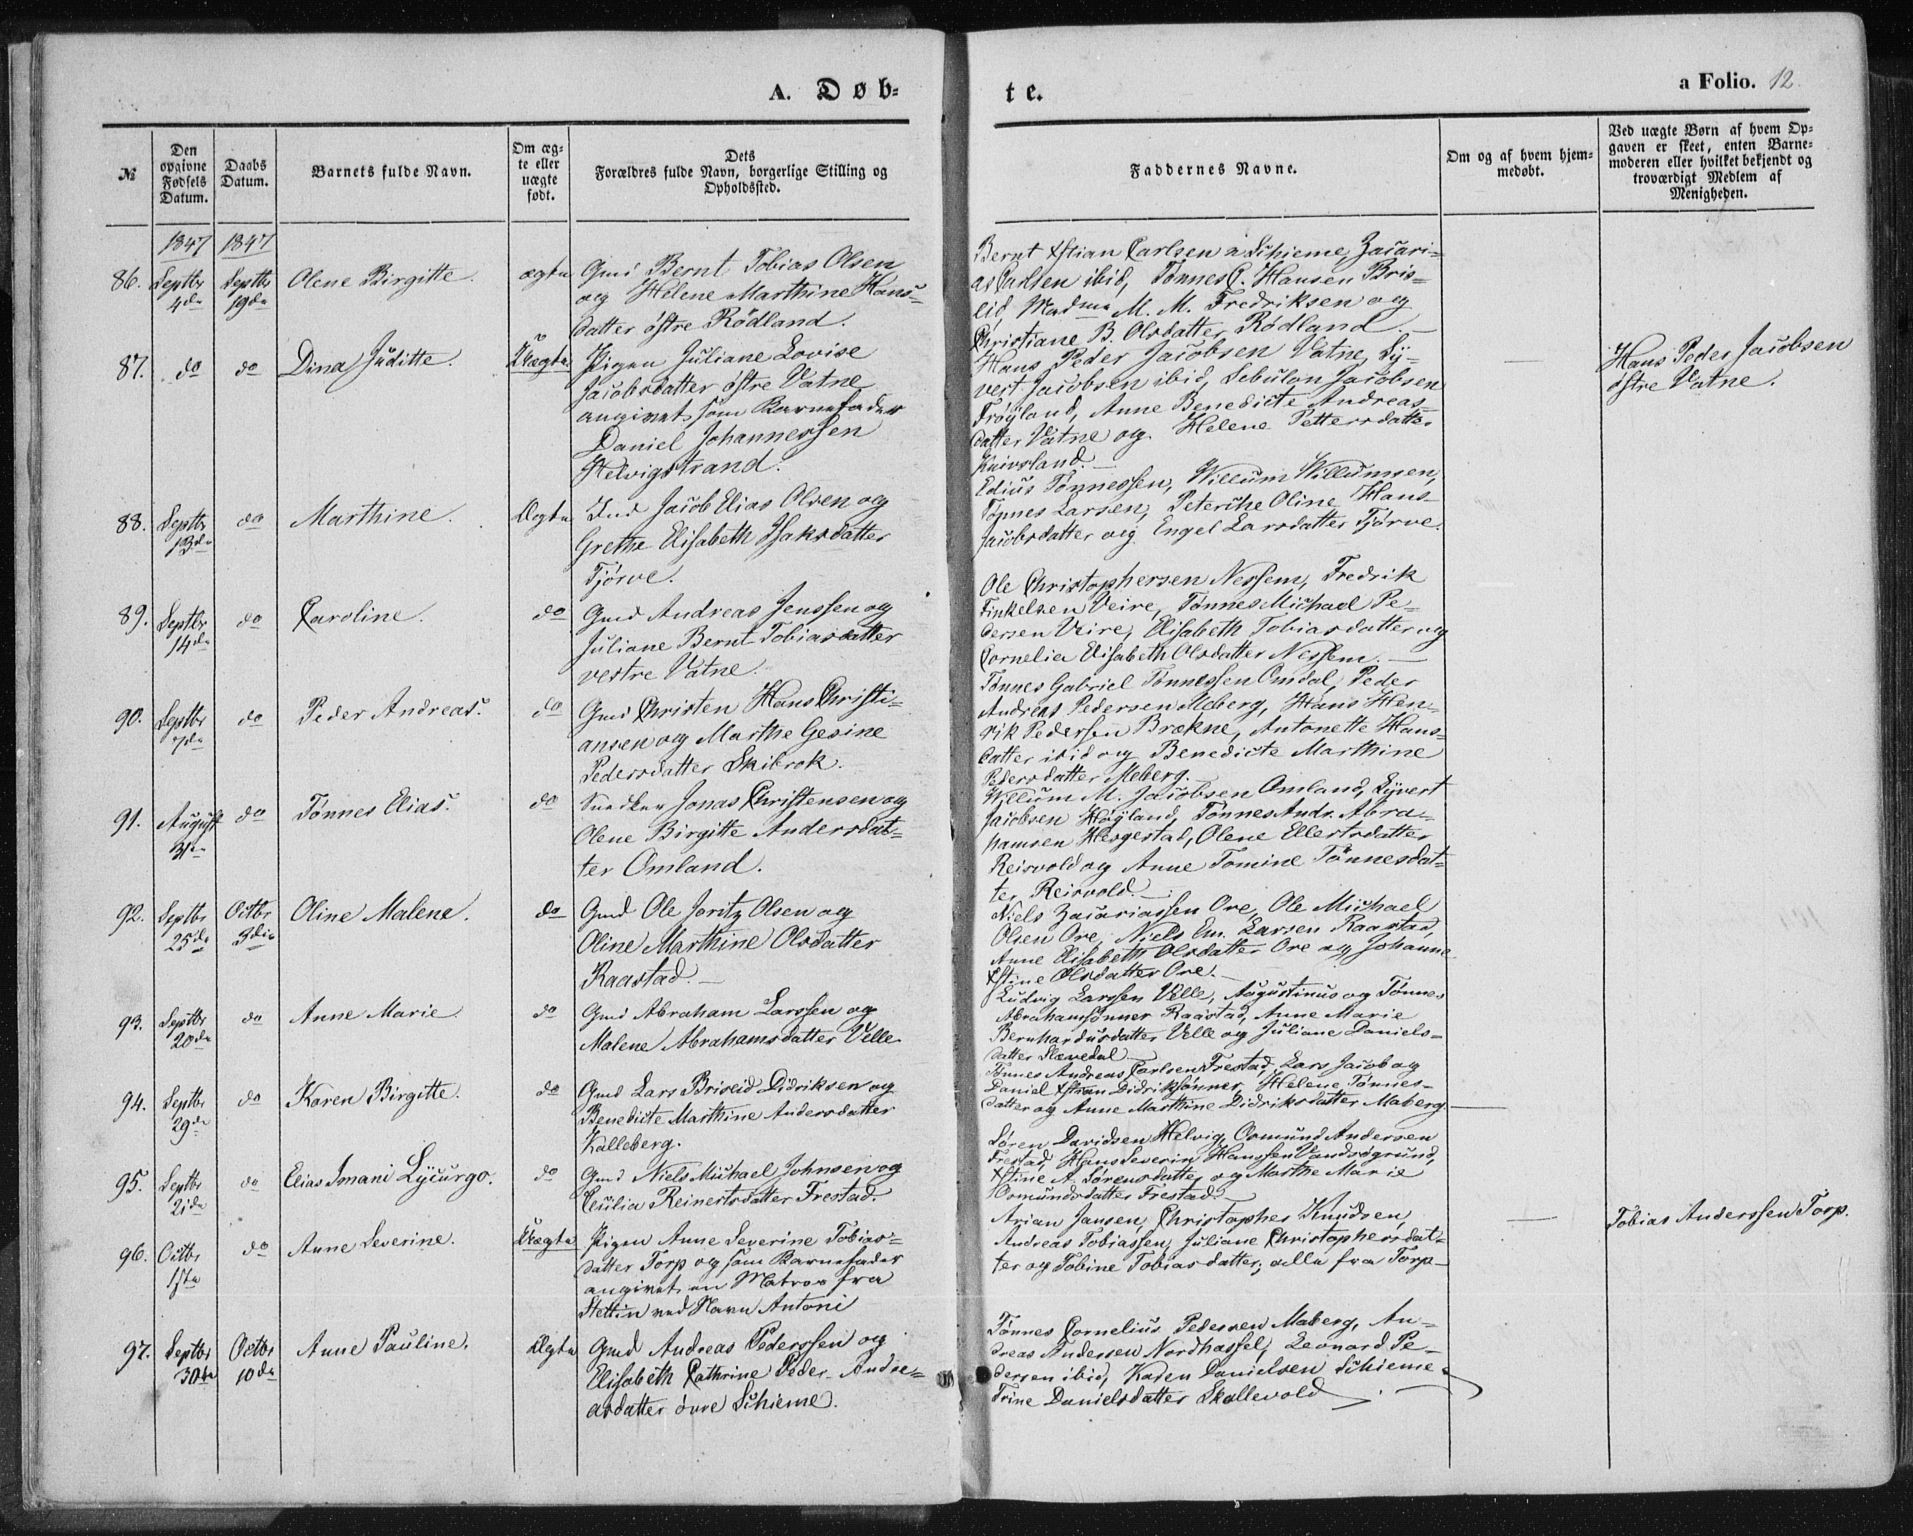 A. Døb-
te.
a Folio. 12
№
Den opgivne Fødsels Datum.
Daabs Datum.
Barnets fulde Navn.
Om æg-
te eller
uægte
født.
Dets
Forældres fulde Navn, borgerlige Stilling og
Opholdssted.
Faddernes Navne.
Om og af hvem hjem-
medøbt.
Ved uægte Børn af hvem Op-
gaven er skeet, enten Barne-
moderen eller hvilket bekjendt og
troværdigt Medlem af
Menigheden.
1847 1847
86. Septbr 4de Septbr 19de Olene Birgitte. ægte
Gmd Bernt Tobias Olsen
og Helene Marthine Hans-
datter østre Rödland.
Bernt Xstian Carlsen n Schieme, Zacari-
as Carlsen ibid, Tønnes C. Hansen Bris-
eid, Madme M. M. Fredriksen og
Christiane B. Olsdatter Rödland. —
87. do do Dina Juditte. Uægte
Pigen Juliane Lovise
Jacobsdatter østre Vatne
angivet som Barnefader
Daniel Johannessen
Helvigstrand.
Hans Peder Jacobsen Vatne, Sy-
vert Jacobsen ibid, Sebulon Jacobsen
Frøyland, Anne Benedicte Andreas-
datter Vatne og Helene Pettersdatter
Kuivsland. —
—
Hans Peder Jacobsen
østre Vatne.
88. Septbr 13de do Marthine. Ægte
Ind Jacob Elias Olsen og
Grethe Elisabeth Isaksdatter
Tjørve.
Edius Tønnessen, Willum Willumsen,
Tønnes Larsen, Peterche Oline Hans-
Jacobsdatter og Engel Larsdatter Tjørve.
89. Septbr 14de do Caroline. do
Gmd Andreas Jenssen og
Juliane Bernt Tobiasdatter
vestre Vatne.
Ole Christophersen Nessem, Fredrik
Finkelsen Veire, Tønnes Michael Pe-
dersen Veire, Elisabeth Tobiasdatter og
Cornelia Elisabeth Olsdatter Nessem. —
90. Septbr 7de do Peder Andreas. do
Gmd Christen Hans Christi-
ansen og Marthe Gesine
Pedersdatter Skibrok.
Tønnes Gabriel Tønnessen Omdal, Peder
Andreas Pedersen Meberg, Hans Hen-
rik Pedersen Brækne, Antonette Hans-
datter ibid og Benedicte Marthine
Pedersdatter Meberg.
91. August 31te do Tønnes Elias. do
Snedker Jonas Christensen og
Olene Birgitte Andersdat-
ter Omland.
Willum M. Jacobsen Omland, Syvert
Jacobsen Høyland, Tønnes Andr. Abra-
hamsen Hesgestad, Olene Ellertsdatter
Reisvold og Anne Tomine Tønnesdat-
ter Reisvold. —
92. Septbr 25de Octbr 3die Oline Malene. do
Gmd Ole Joritz Olsen og
Oline Marthine Olsdatter
Raastad. —
Niels Zacariassen Ore, Ole Michael
Olsen Ore, Niels Em. Larsen Raastad,
Anne Elisabeth Olsdatter Ore og Johanne
Xstine Olsdatter Ore. —
93. Septbr 20de do Anne Marie do
Gmd Abraham Larssen og
Malene Abrahamsdatter Velle
Ludvig Larssen Velle, Augustinus og Tønnes
Abrahamsønner Raastad, Anne Marie
Bernhardusdatter Velle og Juliane Daniels-
datter Slævedal —
94. Septbr 29de do Karen Birgitte. do
Gmd Lars Briseid Didriksen og
Benedicte Marthine Andersdatter
Kalleberg.
Tønnes Andreas Carlsen Frestad, Lars Jacob og
Daniel Xstian Didriksønner, Helene Tønnes-
datter og Anne Marthine Didriksdatter Maberg
95. Septbr 21de do Elias Imani Lycurgo. do
Gmd Niels Michael Johnsen og
Cecilia Reinertsdatter Frestad.
Søren Davidsen Helvig, Osmund Andersen
Frestad, Hans Severin Hanssen Vandsøgrund,
Xstine A. Sørensdatter og Marthe Marie
Osmundsdatter Frestad. —
96. Octbr 1ste do Anne Severine. Uægte
Pigen Anne Severine Tobias-
datter Torp og som Barnefader
angivet en Matros fra
Stettin ved Navn Antoni
Arian Jansen, Christopher Knudsen,
Andreas Tobiassen, Juliane Christophersdat-
ter og Tobine Tobiasdatter, alle fra Torp —
—
Tobias Anderssen Torp.
97. Septbr 30te Octbr 10de Anne Pauline. Ægte
Gmd Andreas Pederssen og
Elisabeth Cathrine Peder Andre-
asdatter övre Schieme.
Tønnes Cornelius Pedersen Maberg, An-
dreas Andersen Nordhassel, Leonard Pe-
dersen ibid, Karen Danielsen Schieme
Trine Danielsdatter Skollevold